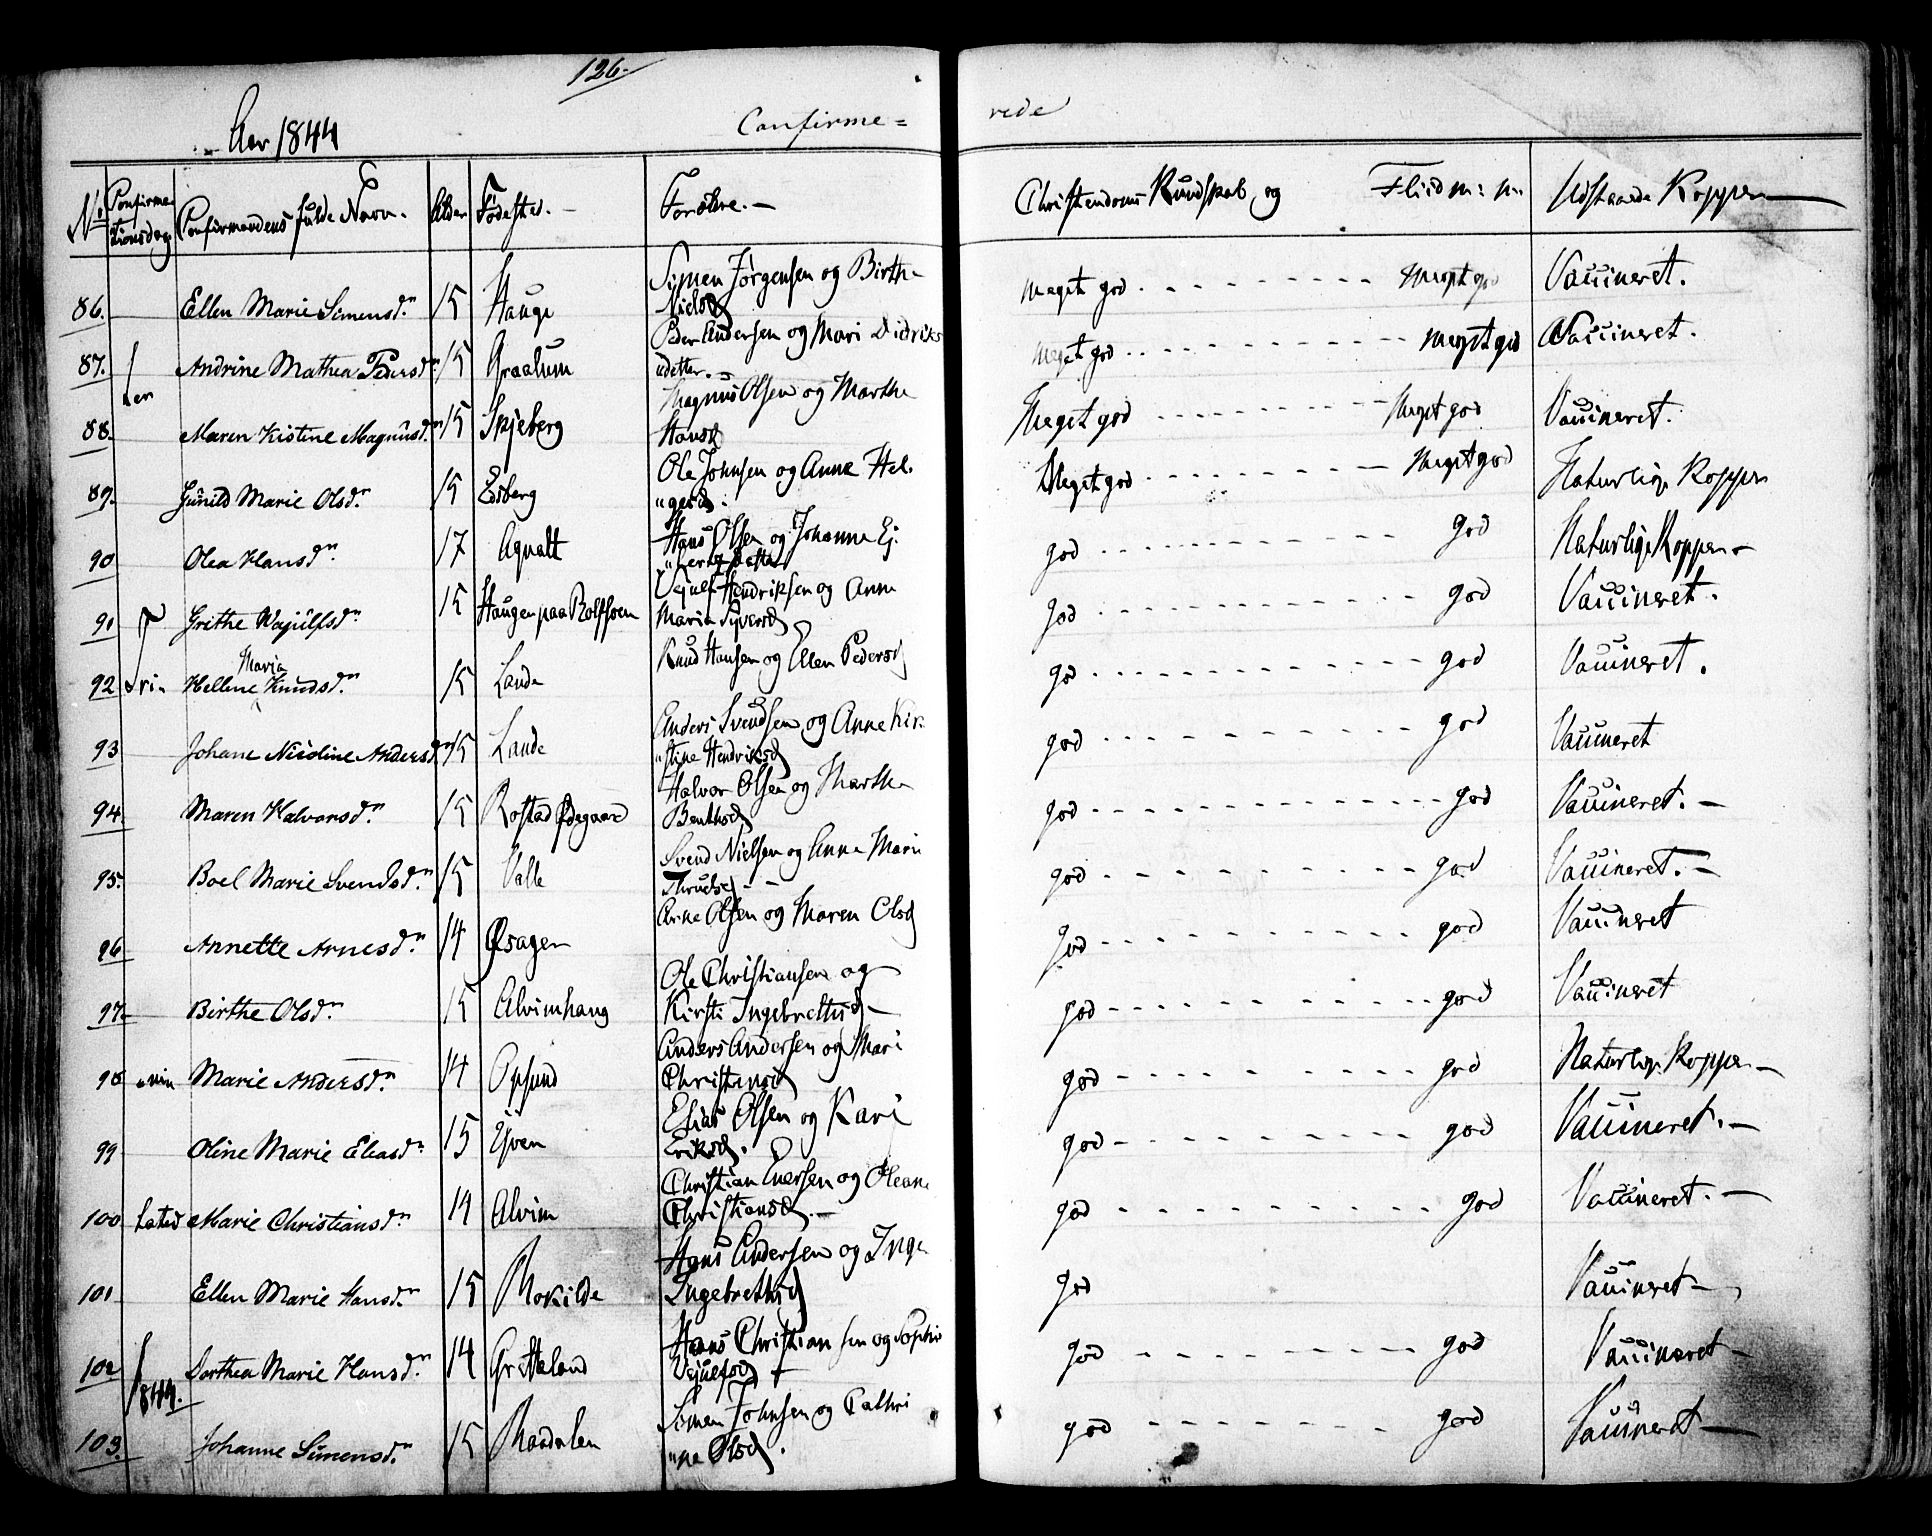 126.
Aar 1844
Confirme=
rede
No. Confirmationsdag. Confirmandens fulde Navn. Alder Fødested. Forældre. Christendoms Kundskab og Fliid m: m: Udstaaede Kopper
86. Ellen Marie Simensd. 15 Hauge Symen Jørgensen og Birthe Nielsd meget god meget god Vaccineret.
87. Andrine Mathea Pedersd. 15 Graalum Per Andersen og Mari Didriks datter. meget god meget god Vaccineret.
88. Maren Kistine Magnusd. 15 Skjeberg Magnus Olsen og Marthe Hansd Meget god Meget god Vaccineret.
89. Gunild Marie Olsd. 15 Edsberg Ole Johnsen og Anne Hel„gesd. Meget god Meget god Naturlige Kopper
90 Olea Hansd. 17 Agvalt Hans Olsen og Johanne god god Naturlige Kopper
91 Grithe Wajulfsd. 15 Haugen paa Rolfsøen Vejulf Hendriksen og Anne Maria Syversd god god Vaccineret.
92 Hellene Maria Knudsd. 15 Lande Knud Hansen og Ellen Pedersd god god Vaccineret.
93 Johane Nicoline Andersd 15 Lande Anders Svendsen og Anne Kir„stine Hendriksd god god Vaccineret
94. Maren Halvorsd. 15 Rostad Ødegaard Halvor Olsen og Marthe Bentsd god god Vaccineret.
95. Boel Marie Svendsd. 15 Valle Svend Nielsen og Anne Marie Thrudsd god god Vaccineret.
96 Annette Arnesd. 14 Arne Olsen og Maren Olsd god god Vaccineret
97. Birthe Olsd. 15 Alvimhaug Ole Christiansen og Kirsti Ingebretsd god god Vaccineret
98 Marie Andersd. 14 Opsund Anders Andersen og Mari Christensd god god Naturlige Kopper
99 Oline Marie Eliasd. 15 Yven Elias Olsen og Kari Eriksd. god god Vaccineret.
100 Marie Christiansd. 14 Alvim Christian Evensen og Oleane Christiansd. god god Vaccineret.
101 Ellen Marie Hansd. 15 Rokilde Hans Andersen og Inge Ingebretsd god Vaccineret
102 Dorthea Marie Hansd. 14 Gretteland Hans Christiansen og Sophie Vejulfsd god god Vaccineret
1844.
103. Johanne Simensd. 15 Simen Johnsen og Cathri„ne Olsd. god god Vaccineret